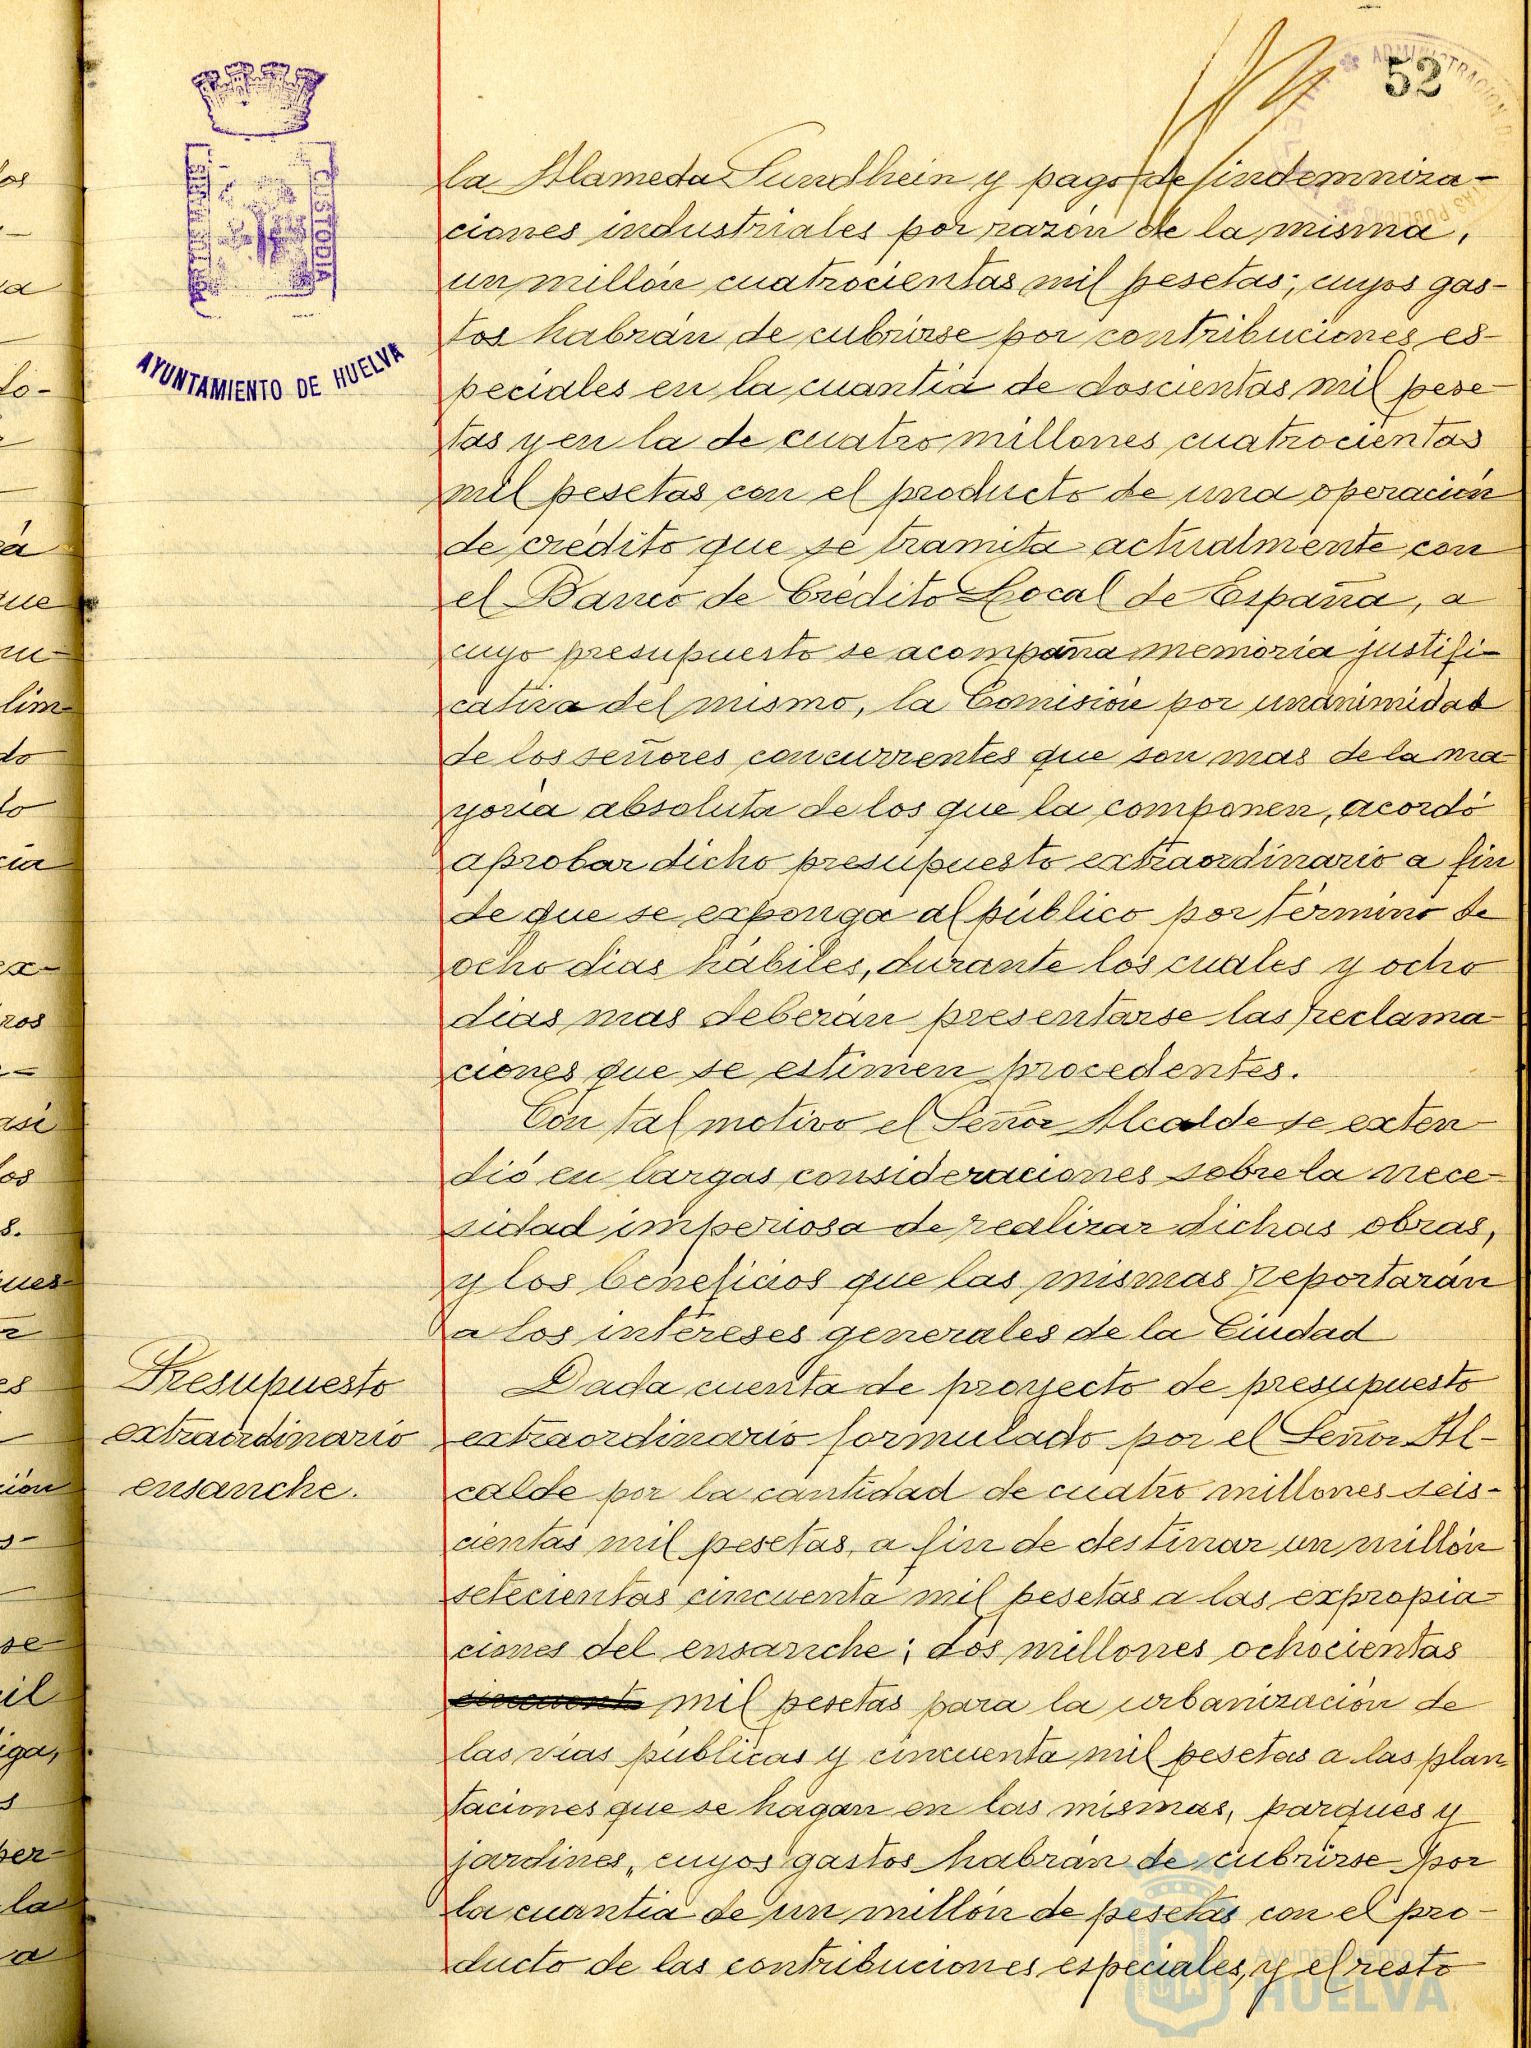 52
AYUNTAMIENTO DE HUELVA
CUSTODIA
la Alameda Sundhein y pago de indemniza-
ciones industriales por razón de la misma,
un millón cuatrocientas mil pesetas; cuyos gas-
tos habrán de cubrirse por contribuciones es-
peciales en la cuantía de doscientas mil pese-
tas y en la de cuatro millones cuatrocientas
mil pesetas con el producto de una operación
de crédito que se tramita actualmente con
el Banco de Crédito Local de España, a
cuyo presupuesto se acompaña memoria justifi-
cativa del mismo, la Comisión por unanimidad
de los señores concurrentes que son mas de la ma
yoria absoluta de los que la componen, acordó
aprobar dicho presupuesto extraordinario a fin
de que se exponga al público por término de
ocho dias hábiles, durante los cuales y ocho
dias mas deberán presentarse las reclama-
ciones que se estimen procedentes.
Con tal motivo el Señor Alcalde se exten-
dió en largas consideraciones sobre la nece-
sidad imperiosa de realizar dichas obras,
y los beneficios que las mismas reportarán
a los intereses generales de la Ciudad
Presupuesto
extraordinario
ensanche.
Dada cuenta de proyecto de presupuesto
extraordinario formulado por el Señor Al-
calde por la cantidad de cuatro millones seis-
cientas mil pesetas, a fin de destinar un millón
setecientas cincuenta mil pesetas a las expropia-
ciones del ensanche; dos millones ochocientas
mil pesetas para la urbanización de
las vías públicas y cincuenta mil pesetas a las plan-
taciones que se hagan en las mismas, parques y
jardines, cuyos gastos habrán de cubrirse por
la cuantía de un millón de pesetas con el pro-
ducto de las contribuciones especiales, y el resto
Ayuntamiento de
HUELVA